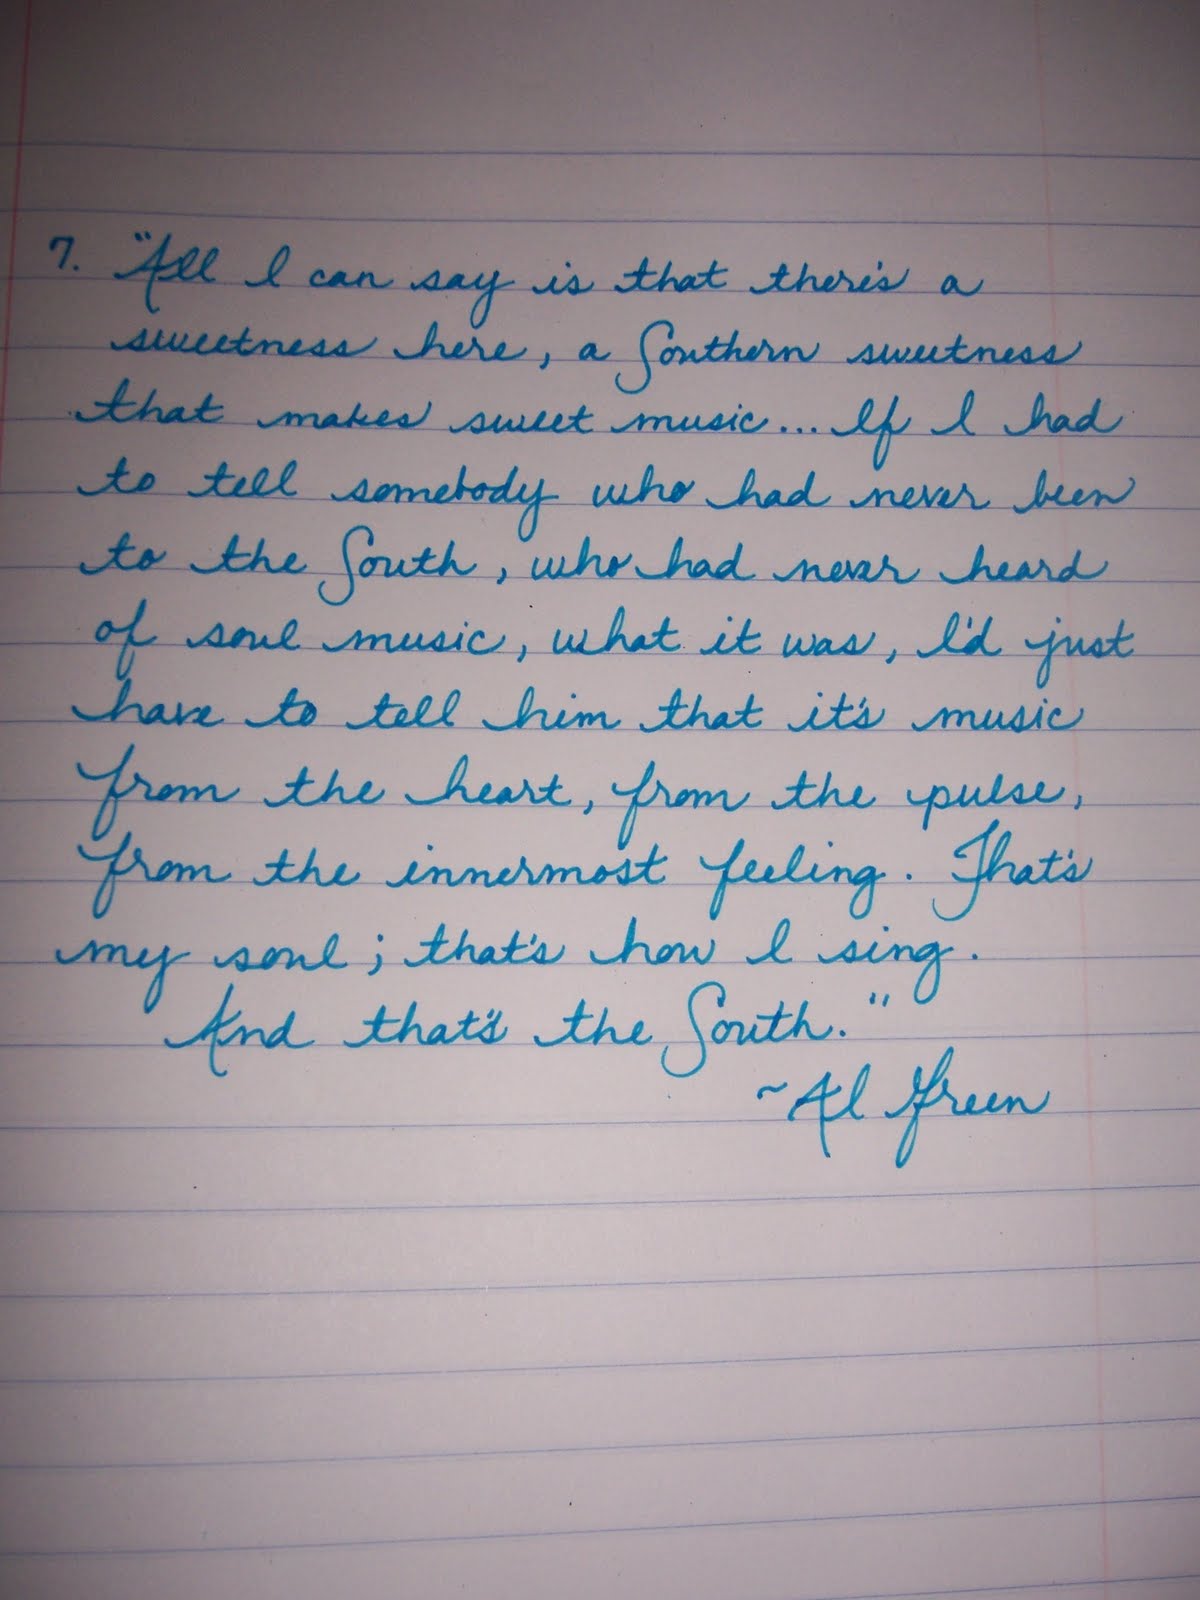 7. "All I can say is that there's a
sweetness here, a Southern sweetness
that makes sweet music... If I had
to tell somebody who had never been
to the South, who had never heard
of soul music, what it was, I'd just
have to tell him that it's music
from the heart, from the pulse,
from the innermost feeling. That's
my soul; that's how I sing.
And that's the South."
~Al Green